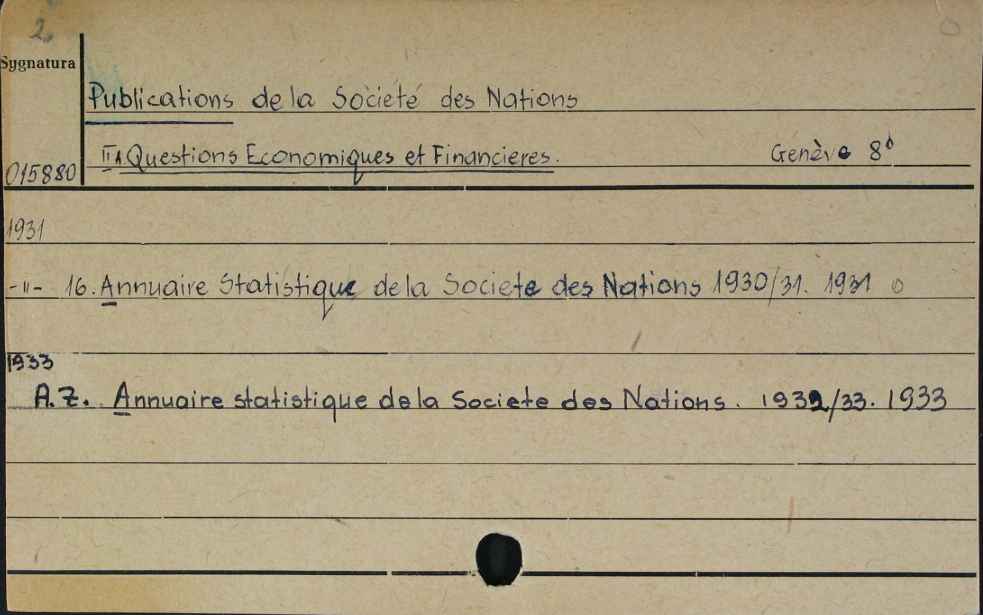 2
Sygnatura
Publications de la Societé des Nations
II A Questions Economiques et Financieres. Genève 8°
015880
1931
-"- 16. Annuaire Statistique de la Societe des Nations 1930/31. 1931 o
1933
A.Z. Annuaire statistique de la Societe des Nations. 1932/33. 1933